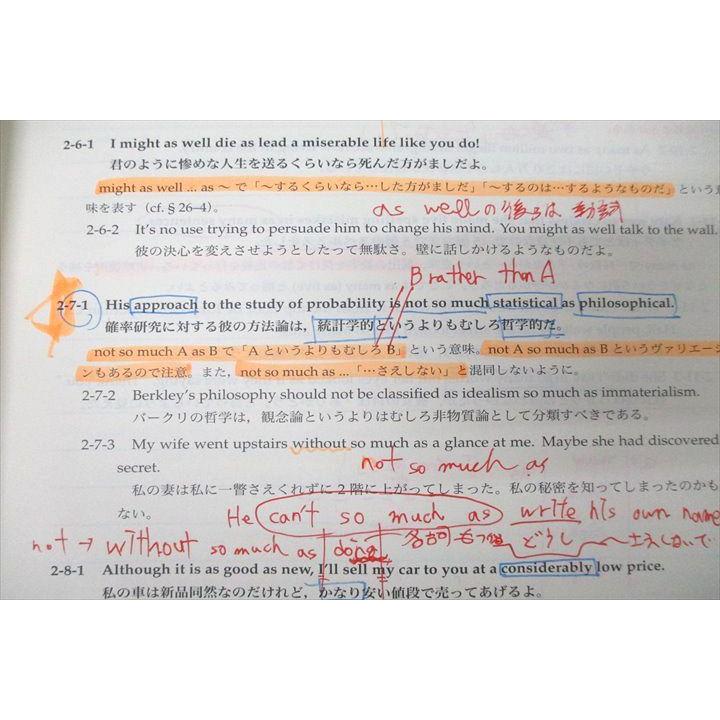 2-6-1 I might as well die as lead a miserable life like you do!
君のように惨めな人生を送るくらいなら死んだ方がましだよ。
might as well ... as ～ で「～するくらいなら…した方がましだ」「～するのは…するようなものだ」という意
味を表す（cf. § 26–4）。
as wellの後ろは動詞
2-6-2 It's no use trying to persuade him to change his mind. You might as well talk to the wall.
彼の決心を変えさせようとしたって無駄さ。壁に話しかけるようなものだよ。
B rather than A
2-7-1 His approach to the study of probability is not so much statistical as philosophical.
確率研究に対する彼の方法論は，統計学的というよりもむしろ哲学的だ。
not so much A as B で「A というよりもむしろ B」という意味。not A so much as B というヴァリエーシ
ンもあるので注意。また，not so much as ...「…さえしない」と混同しないように。
2-7-2 Berkley's philosophy should not be classified as idealism so much as immaterialism.
バークリの哲学は，観念論というよりはむしろ非物質論として分類すべきである。
2-7-3 My wife went upstairs without so much as a glance at me. Maybe she had discovered
secret.
not so much as
私の妻は私に一瞥さえくれずに 2 階に上がってしまった。私の秘密を知ってしまったのかも
ない。
He can't so much as write his own name
not → without so much as doing
2-8-1 Although it is as good as new, I'll sell my car to you at a considerably low price.
私の車は新品同然なのだけれど，かなり安い値段で売ってあげるよ。